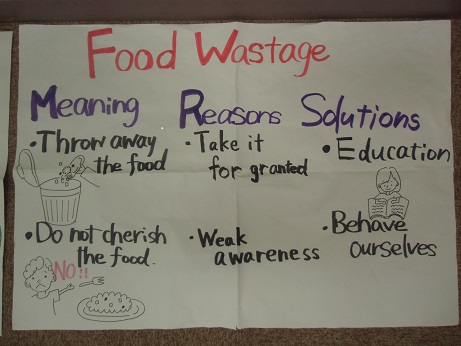 Food Wastage
Meaning
• Throw away
the food
• Do not cherish
the food.
NO!!
Reasons
• Take it
for granted
• Weak
awareness
Solutions
• Education
• Behave
ourselves